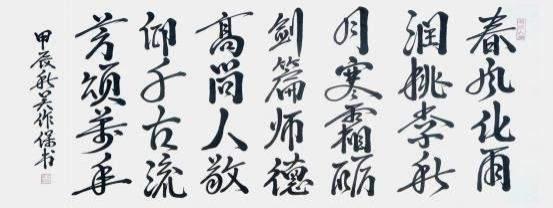 春风化雨
润桃李秋
月寒霜砺
剑篇师德
高尚人敬
仰千古流
芳颂萬年
甲辰秋吴作保书